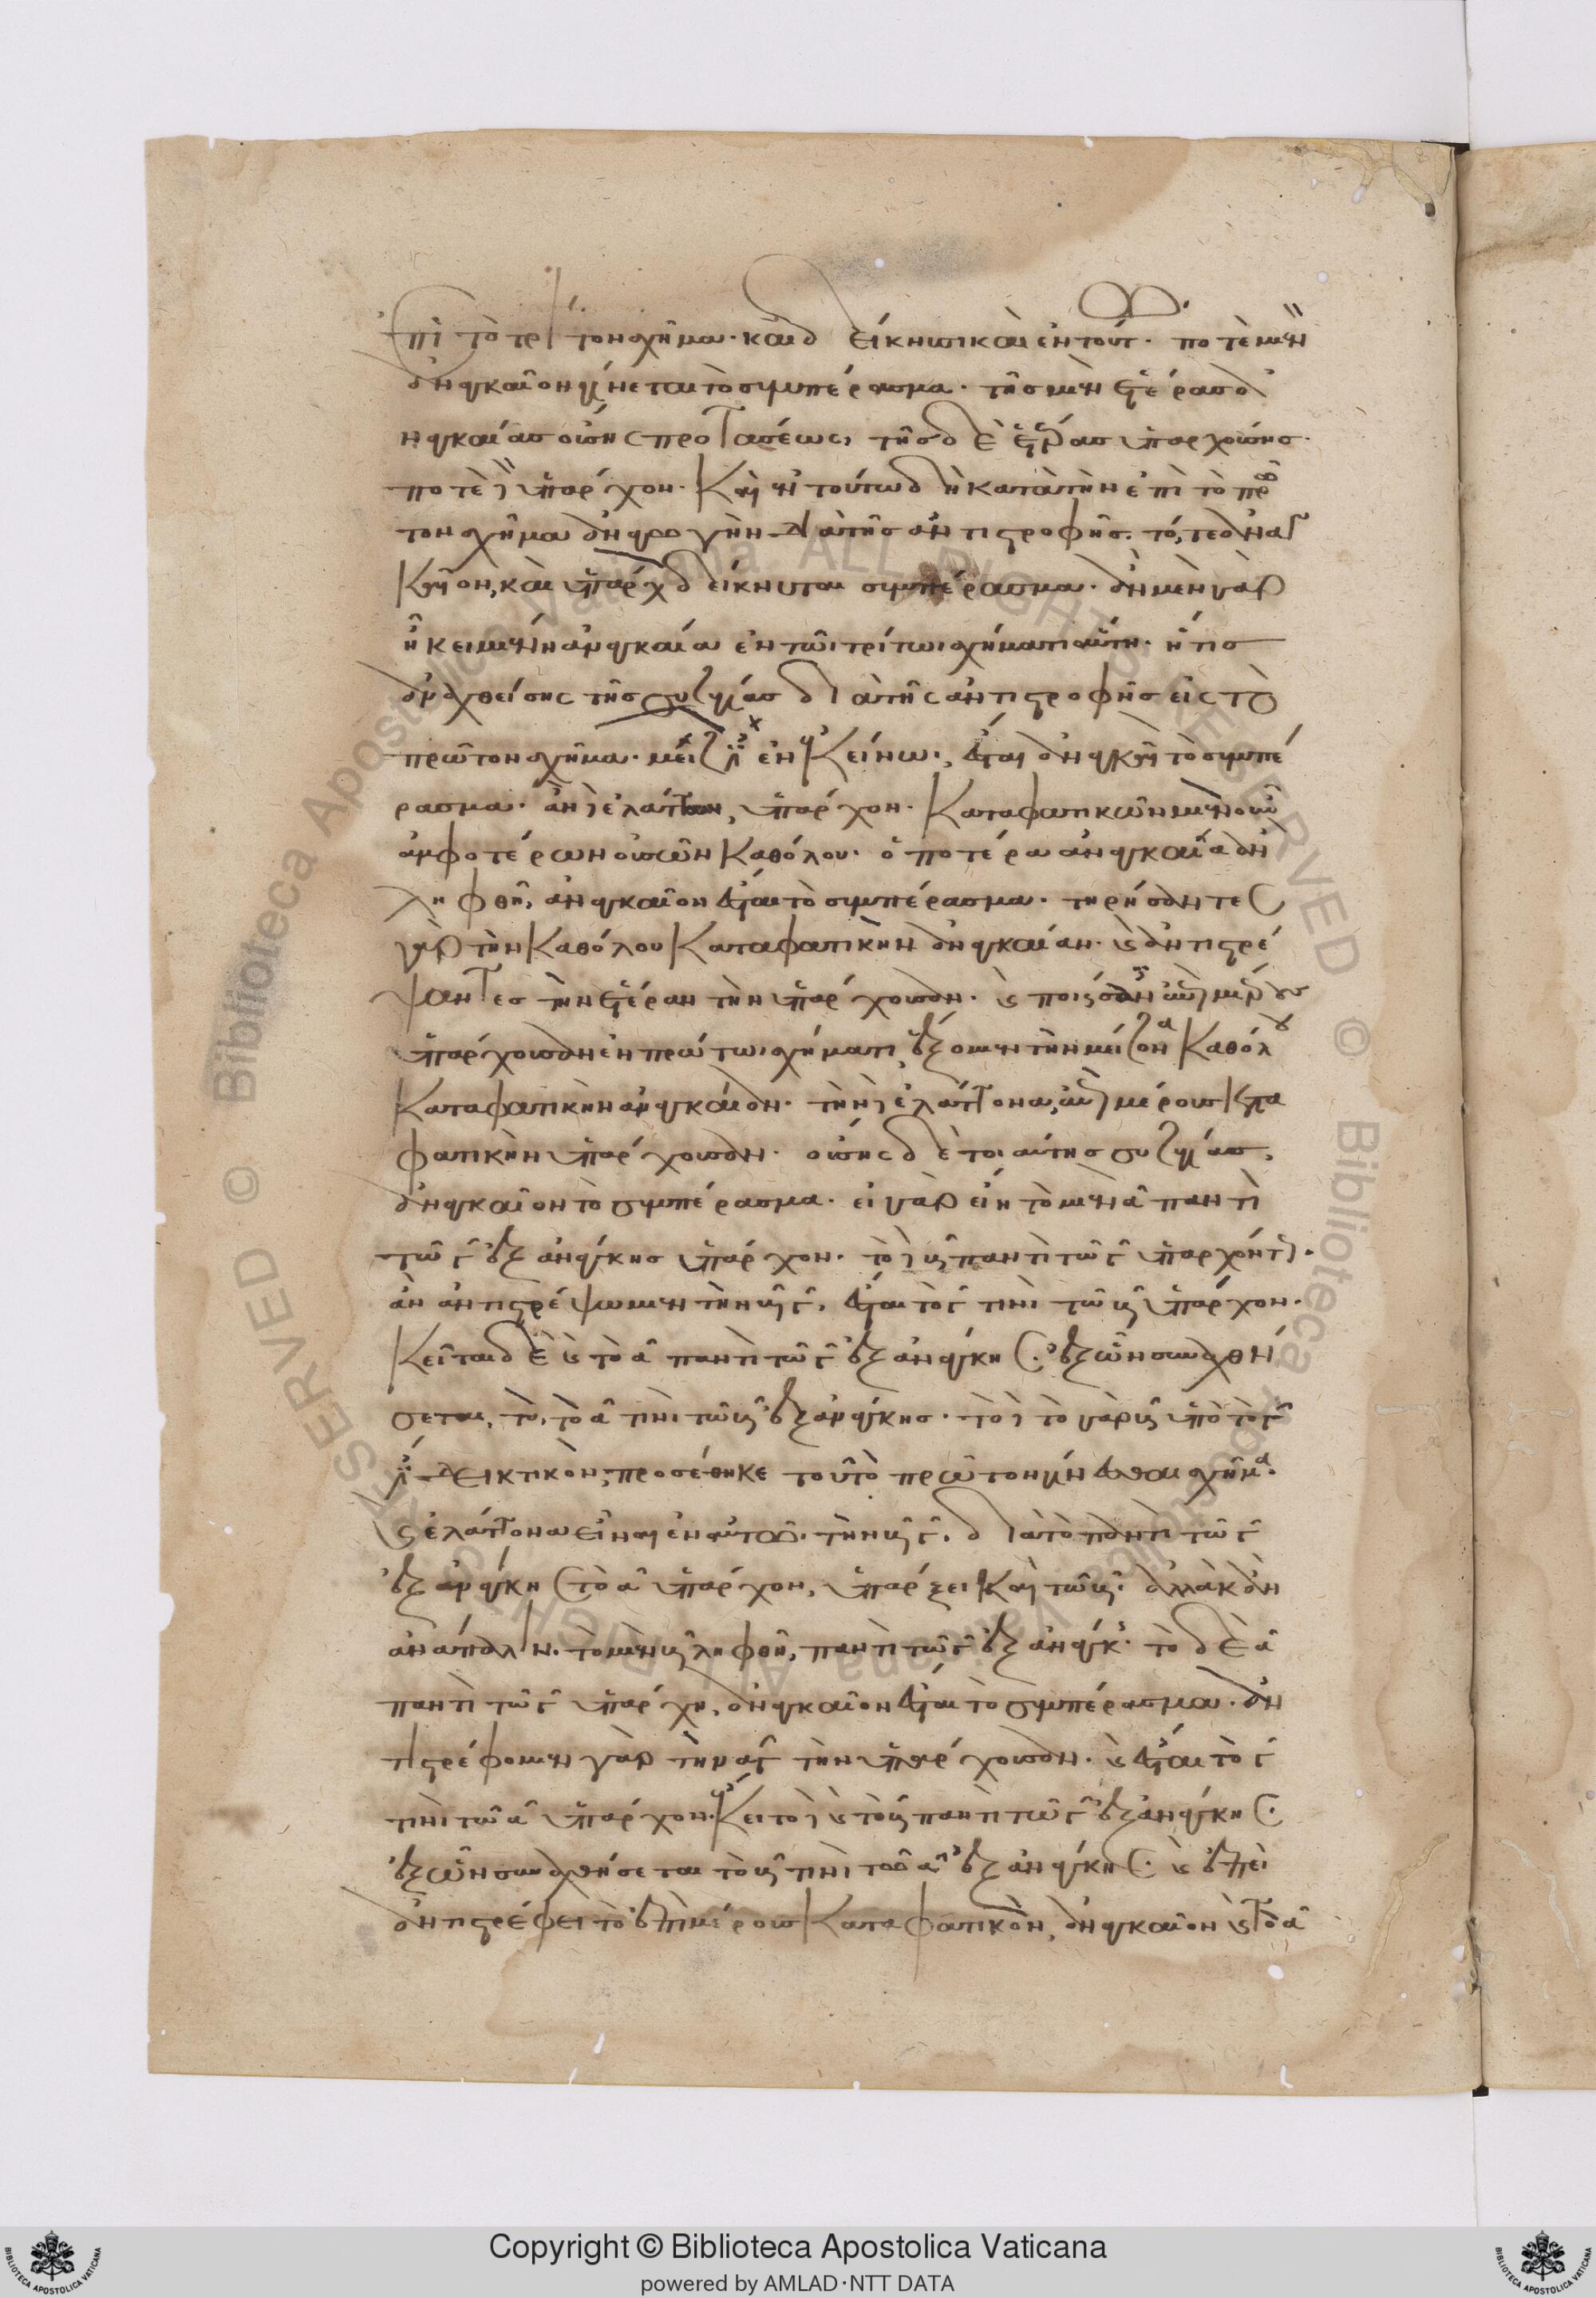 ἐπὶ τὸ τρίτον σχῆμα· καὶ δείκνυσι καὶ ἐν τούτω· ποτὲ μὲν
ἀναγκαῖον γινεται τὸ συμπέρασμα· τῆς μὲν ἑτέρας ἀ
ναγκαίας οὔσης προτάσεως, τῆς δὲ ἑτέρας ὑπαρχούσης·
ποτὲ δὲ ὑπάρχον· καὶ ἐν τούτω δὴ κατὰ τὴν ἐπὶ τὸ πρῶ
τον σχῆμα ἀναγωγὴν διὰ τῆς ἀντιστροφῆς· τό, τε ἀναγ
καῖον, καὶ ὑπάρχον δείκνυται συμπέρασμα· ἂν μὲν γὰρ
ἦ κειμένη ἀναγκαία ἐν τῶι τρίτωι σχήματι αὕτη· ἥτις
ἀναχθείσης τῆς συζυγίας διὰ τῆς ἀντιστροφῆς εἰς τὸ
πρῶτον σχῆμα· μείζων ἐν ἐκείνω· ἔσται ἀναγκαῖον τὸ συμπέ
ρασμα· ἂν δὲ ἐλάττων, ὑπάρχον· καταφατικῶν μὲν οὖν
ἀμφοτέρων οὐσῶν καθόλου· ὁποτέρα ἀναγκαία ἂν
ληφθῆ, ἀναγκαῖον ἔσται τὸ συμπέρασμα· τηρήσαντες
γὰρ τὴν καθόλου καταφατικὴν ἀναγκαίαν· καὶ ἀντιστρέ
ψαντες τὴν ἑτέραν τὴν ὑπάρχουσαν· καὶ ποιήσαντες αὐτὴν ἐπὶ μέρους
ὑπάρχουσαν ἐν πρώτωι σχήματι, ἕξομεν τὴν μείζονα καθόλου
καταφατικὴν ἀναγκαίαν· τὴν δὲ ἐλάττονα, ἐπὶ μέρους κατα
φατικὴν ὑπάρχουσαν· οὔσης δὲ τοιαύτης συζυγίας,
ἀναγκαῖον τὸ συμπέρασμα· εἰ γὰρ εἴη τὸ μὲν α παντὶ
τῶ γ ἐξ ἀνάγκης ὑπάρχον· τὸ δὲ β παντὶ τῶ γ ὑπαρχόντως·
ἂν ἀντιστρέψωμεν τὴν βγ, ἔσται τὸ γ τινὶ τῶ β ὑπάρχον·
κεῖται δὲ καὶ τὸ α παντὶ τῶ γ ἐξ ἀνάγκης· ἐξ ὧν συναχθή
σεται, τὸ, τὸ α τινὶ τῶ β ἐξ ἀνάγκης· τὸ δὲ τὸ γὰρ β ὑπὸ τὸ γ
δεικτικὸν, προσέθηκε τοῦτο πρῶτον γίνεσθαι σχῆμα·
καὶ ἐλάττονα εἶναι ἐν αὐτῶ· τὴν βγ· διὰ τὸ παντὶ τῶ γ
ἐξ ἀνάγκης τὸ α ὑπάρχον, ὑπάρξει καὶ τῶ β· ἀλλὰ κἂν
ἀνάπαλιν· τὸ μὲν β ληφθῆ, παντὶ τῶ γ ἐξ ἀνάγκης· τὸ δὲ α
παντὶ τῶ γ ὑπάρχη, ἀναγκαῖον ἔσται τὸ συμπέρασμα· ἀν
τιστρέφομεν γὰρ τὴν αγ τὴν ὑπάρχουσαν· καὶ ἔσται τὸ γ
τινὶ τῶ α ὑπάρχον· ἔκειτο δὲ καὶ τὸ β παντὶ τῶ γ ἐξ ἀνάγκης·
ἐξ ὧν συναχθήσεται τὸ β τινὶ τῶ α ἐξ ἀνάγκης· καὶ ἐπεὶ
ἀντιστρέφει τὸ ἐπὶ μέρους καταφατικὸν, ἀναγκαῖον καὶ τὸ α
Copyright © Biblioteca Apostolica Vaticana
powered by AMLAD·NTT DATA